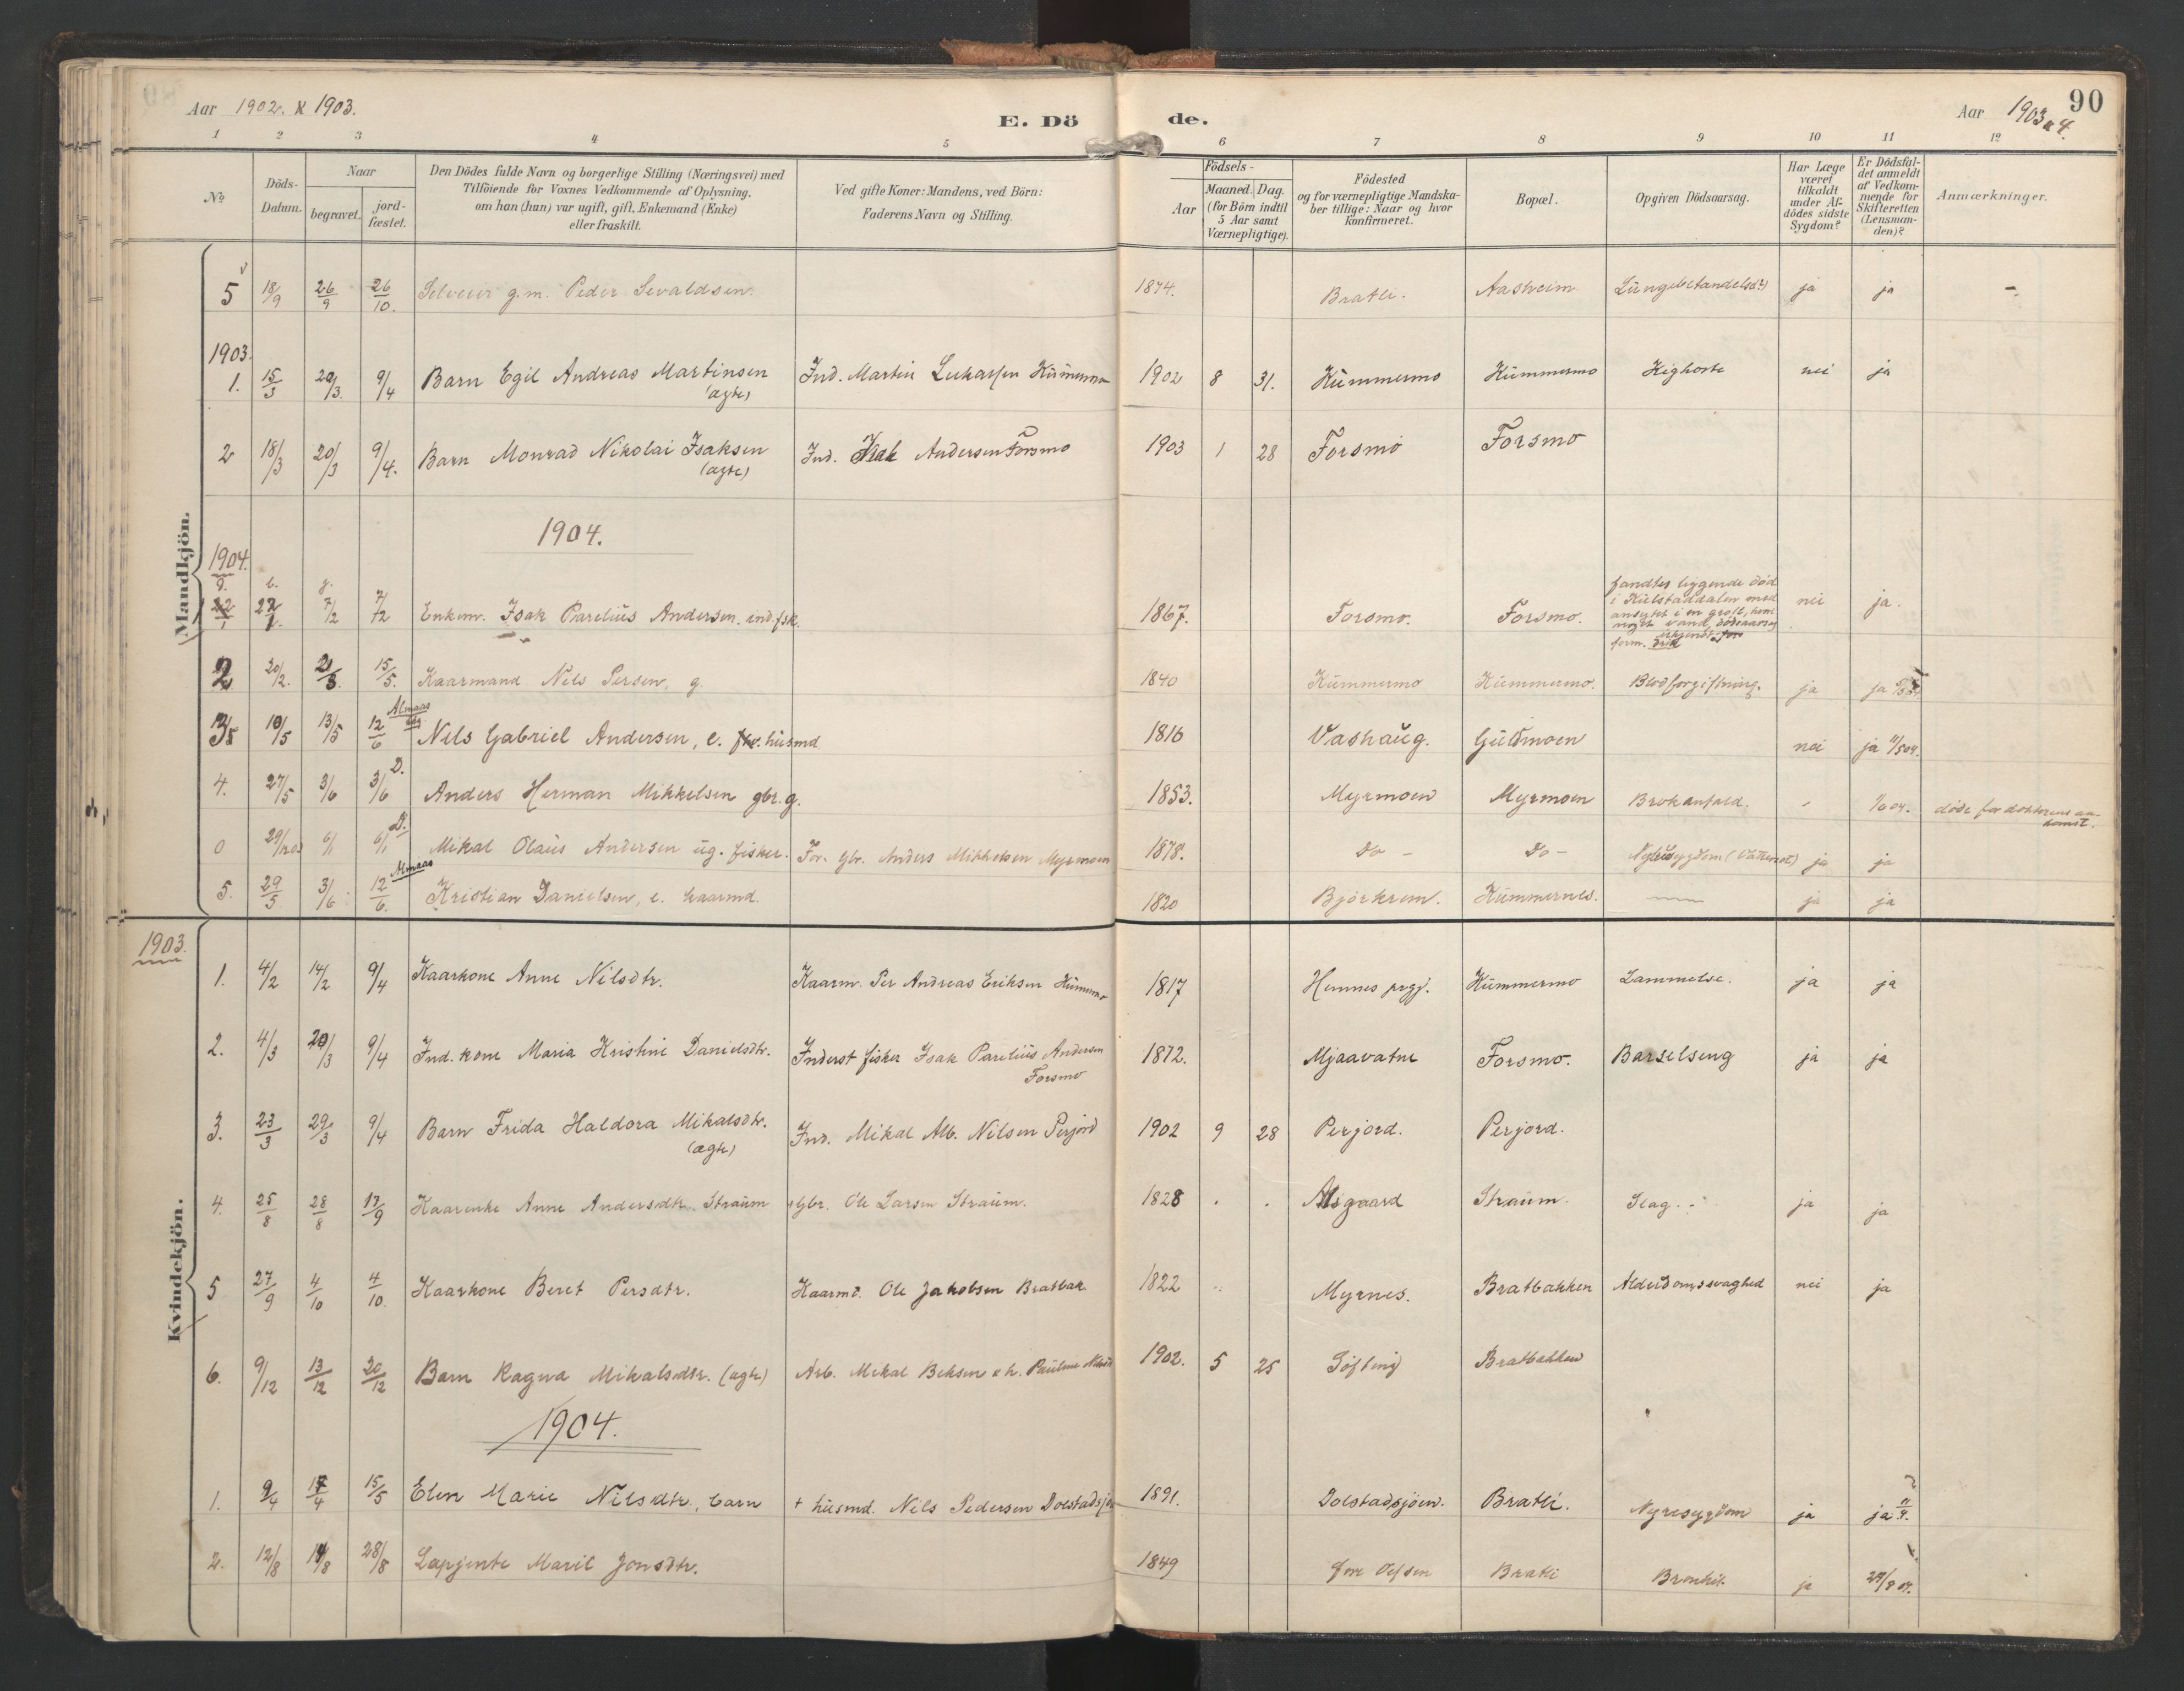 Aar 1902 & 1903.
E. Dö
de.
Aar 1903 & 4.
90
1 2 3 4 5 6 7 8 9 10 11 12
No
Döds-Datum.
Naar
begravet.
jordfæstet.
Den Dödes fulde Navn og borgerlige Stilling (Næringsvei) med
Tilföiende for Voxnes Vedkommende af Oplysning,
om han (hun) var ugift, gift, Enkemand (Enke)
eller fraskilt.
Ved gifte Koner: Mandens, ved Börn:
Faderens Navn og Stilling.
Födsels-
Aar
Maaned. Dag.
(for Börn indtil
5 Aar samt
Værnepligtige).
Födested
og for værnepligtige Mandska-
ber tillige: Naar og hvor
konfirmeret.
Bopæl.
Opgiven Dödsaarsag.
Har Læge
været
tilkaldt
under Af-
dödes sidste
Sygdom?
Er Dödsfal-
det anmeldt
af Vedkom-
mende for
Skifteretten
(Lensman-
den)?
Anmærkninger.
Mandkjön.
5 18/9 26/9 26/10. g.m. Peder Sivaldsen. 1874. Bratli. Aasheim ja ja -
1903.
1. 15/3 20/3. 9/4 Barn Egil Andreas Martinsen (ægte) Ind. Martin Lukassen Kummermo 1902 8 31. Kummermo Kummermo Kighoste nei ja
2 18/3 20/3 9/4. Barn Monrad Nikolai Isaksen (ægte) Ind. Isak Andersen Forsmo 1903 1 28 Forsmo Forsmo
1904.
1904.
7/2 7/2 Enkem. Isak Parelius Andersen. ind. fsk. 1867. Forsmo. Forsmo.
fandtes liggende död
i Kulstaddalen med
ansigtet i en gröft, hvori
noget vand, dödsaarsag
nei ja.
2 20/2. 15/5. Kaarmand Nils Persen, g. 1840 Kummermo Kummermo. Blodforgiftning. ja ja
3 10/5 13/5 12/6 Almaas Nils Gabriel Andersen, e. husmd 1816 Vashaug. Guldmoen nei ja 11/5 04.
4. 27/5 3/6 3/6 D. Anders Herman Mikkelsen gbr. g. 1853. Myrmoen Myrmoen Brokanfald. 1/6 04. döde för doktorens an-
komst.
0 29/12 03 6/1 6/1 D. Mikal Olaus Andersen ug. fisker. For. gbr. Anders Mikkelsen Myrmoen 1878. Do - Do - ja ja
5. 29/5 3/6 12/6. Almaas Kristian Danielsen, e. kaarmd. 1820 Björkrem. Kummernes. ja ja
Kvindekjön.
1903.
1. 4/2 14/2 9/4 Kaarkone Anne Nilsdtr. Kaarm. Per Andreas Eriksen Kummermo 1817 Hemnes prgj. Kummermo Lammelse. ja ja
2. 4/3 20/3 9/4 Ind. kone Maria Kristine Danielsdtr. Inderst fisker Isak Parelius Andersen
Forsmo 1872. Mjaavatne Forsmo. Barselseng ja ja
3. 23/3 29/3 9/4 Barn Frida Haldora Mikalsdtr. (ægte) Ind. Mikal Alb. Nilsen Perjord 1902 9 28 Perjord. Perjord.
4. 25/8 28/8 17/9 Kaarenke Anne Andersdtr. Straum Gbr. Ole Larsen Straum. 1828 Alsgaard Straum. Slag. ja ja
5 27/9 4/10 4/10. Kaarkone Beret Persdtr. Kaarmd. Ole Jakobsen Bratbak. 1822 Myrnes. Bratbakken Alderdomssvaghed nei ja
6. 9/12 13/12 20/12 Barn Ragna Mikalsdtr. (ægte) Arb. Mikal & h. Pauline 1902. 5 25 Bratbakken
1904.
1. 9/4 17/4 15/5 Elen Marie Nilsdtr., barn + husmd. Nils Pedersen Dolstadsjöen 1891. Dolstadsjöen. Bratli. Nyresygdom ja ja
2. 12/8 14/8 28/8 Lapjente Maril Jonsdtr. 1849 Bratli Bronkit. ja